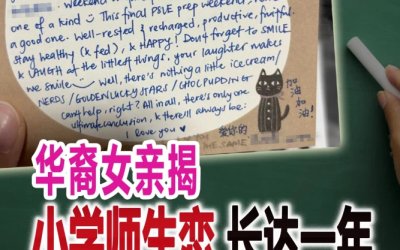 weekend
one of a kind This final PSLE prep weekend,
a good one. Well-rested & recharged, productive, fruitful.
stay healthy (& fed), & HAPPY! Don't forget to SMILE
& LAUGH at the little things, your laughter makes
me smile Well, there's nothing a little ice cream/
NERDS/GOLDEN LUCKY STARS/CHOC PUDDING
can't help, right? All in all, there's only one
ultimate conclusion, & there'll always be:
I love you ♥
加油
加油!
爱你的
ME SAME
华裔女亲揭
小学师生恋 长达一年